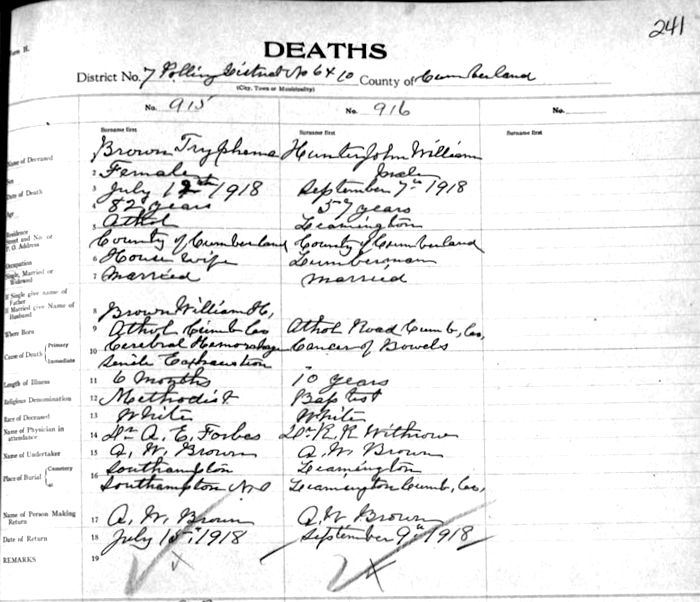 241
Form H.
DEATHS
District No. 7 Polling District No 6 & 10 County of Cumberland
(City, Town or Municipality)
No. 915 No. 916 No.
Surname first Surname first Surname first
Name of Deceased 1 Brown Tryphema Hunter John William
Sex 2 Female male
Date of Death 3 July 12th 1918 September 7th 1918
Age 4 82 years 57 years
Residence Street and No. or P. O. Address 5 Athol Leamington
County of Cumberland County of Cumberland
Occupation 6 House wife Lumberman
Single, Married or Widowed 7 Married married
If Single give name of Father
If Married give Name of Husband 8 Brown William H,
Where Born 9 Athol Cumb Co Athol Road Cumb, Co,
Cause of Death Primary 10 Cerebral Hemorrhage Cancer of Bowels
Immediate Senile Exhaustion
Length of Illness 11 6 Months 10 years
Religious Denomination 12 Methodist Baptist
Race of Deceased 13 White White
Name of Physician in attendance 14 Dr. A. E. Forbes Dr. R. R Withrow
Name of Undertaker 15 A. W. Brown A. W. Brown
Place of Burial Cemetery 16 Southampton Leamington
at Southampton N.S Leamington Cumb, Co,
Name of Person Making Return 17 A. W. Brown A. W Brown
Date of Return 18 July 15th 1918 September 9th 1918
REMARKS 19 x x